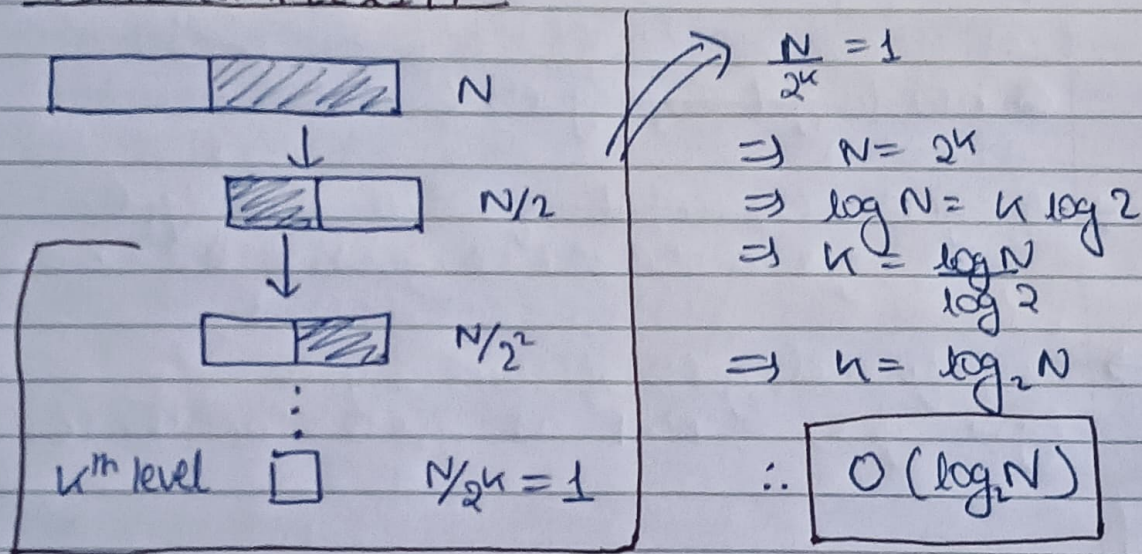 N
N/2
N/2²
kᵗʰ level N/2ᵏ = 1
N/2ᵏ = 1
⇒ N = 2ᵏ
⇒ log N = k log 2
⇒ k = log N / log 2
⇒ k = log₂ N
∴ O (log₂N)